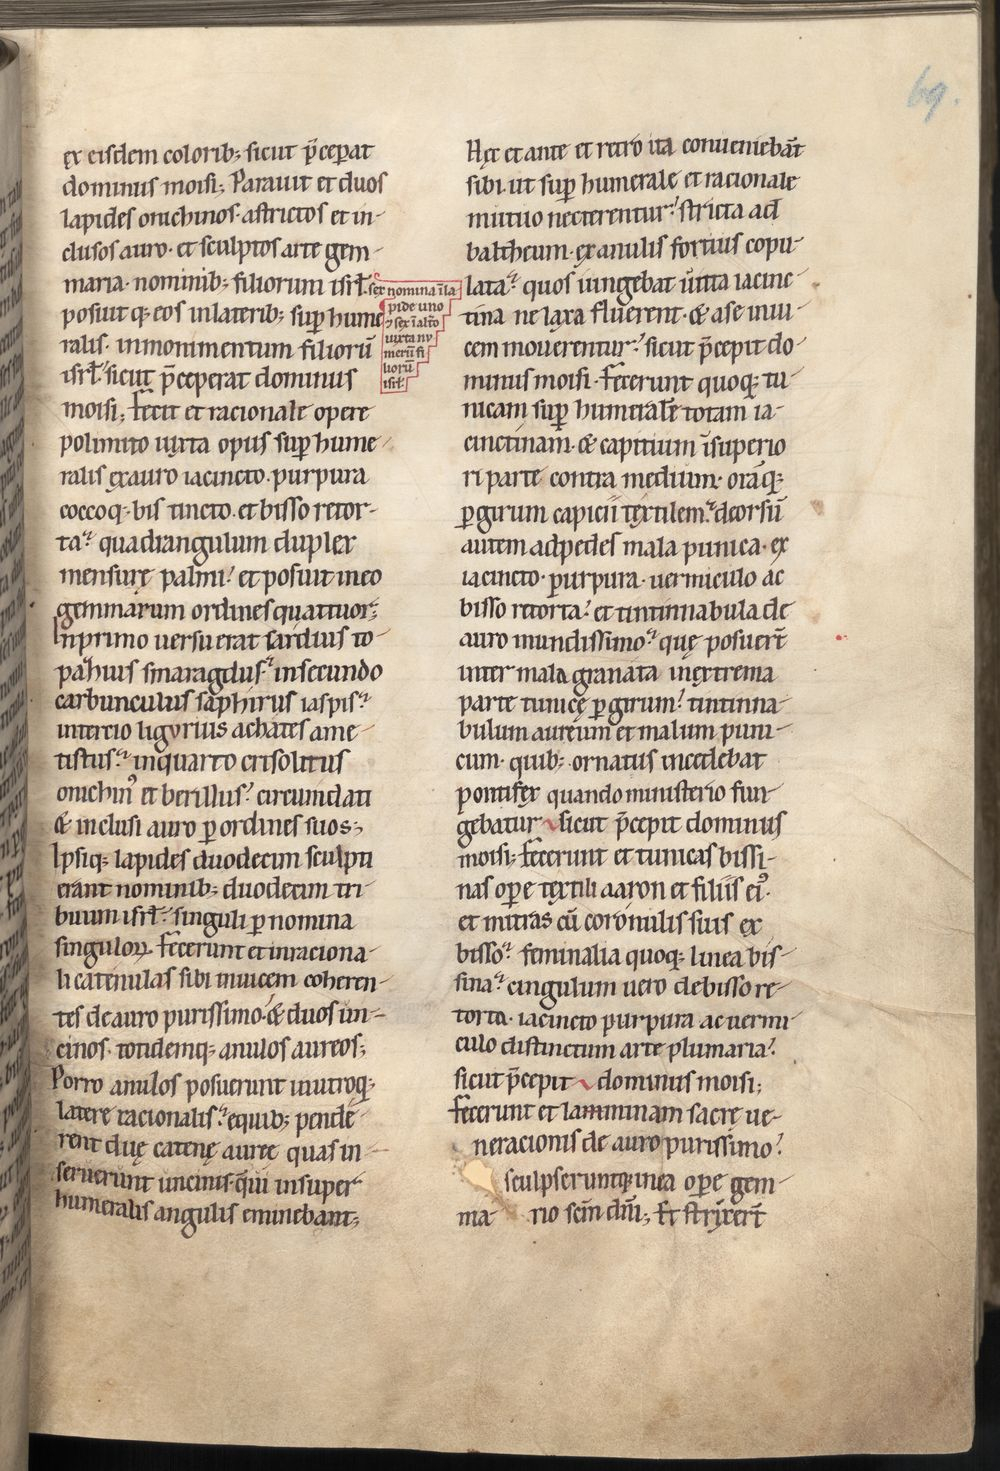 69.
ex eisdem colorib; sicut p̄cep̱at
dominus moisi; Parauit et duos
lapides onichinos· astrictos et in-
clusos auro· et sculptos arte gem-
maria· nominib; filiorum isrl̄·
posuit q; eos in laterib; sup̱ hume
ralis· in monimentum filiorū
isrl̄· sicut p̄ceperat dominus
moisi; Fecit et racionale opere
polimito iuxta opus sup̱ hume-
ralis ex auro iacincto· purpura
coccoq; bis tincto· et bisso retor-
ta· quadrangulum duplex
mensurę palmi· et posuit in eo
gemmarum ordines quattuor;
In primo uersu erat sardius to-
pahius smaragdus· in secundo
carbunculus saphirus iaspis·
in tercio ligyrius achates ame-
tistus· in quarto crisolitus
onichinꝰ et berillus· circumdati
& inclusi auro p̱ ordines suos;
Ipsiq; lapides duodecim sculpti
erant nominib; duodecim tri-
buum isrl̄· singuli p̱ nomina
singuloꝝ. Fecerunt et in raciona-
li catenulas sibi inuicem coheren-
tes de auro purissimo· & duos un-
cinos· totidemq; anulos aureos;
Porro anulos posuerunt in utroq;
latere racionalis· e quib; pende-
rent duę catenę auree quas in-
seruerunt uncinis· q̄ui in super
humeralis angulis eminebant;
sex nomina ī la
pide uno
⁊ sex ī alt̄o
iuxta nu
merū fi
liorū
isrl̄
Hęc et ante et retro ita conueniebāt
sibi· ut sup̱ humerale et racionale
mutuo necterentur· stricta ad
baltheum· ex anulis fortius copu-
lata· quos iungebat uitta iacinc-
tina ne laxa fluerent· & a se inui-
cem mouerentur· sicut p̄cepit do-
minus moisi· Fecerunt quoq; tu-
nicam sup̱ humerale totam ia-
cinctinam· & capitium ī superio
ri parte contra medium· orāq;
p̱ girum capicii textilem· deorsū
autem ad pedes mala punica· ex
iacincto· purpura· uermiculo ac
bisso retorta· et tintinnabula de
auro mundissimo· quę posuer̄t
inter mala granata in extrema
parte tunicę p̱ girum· tintinna-
bulum aureum et malum puni-
cum· quib; ornatus incedebat
pontifex quando ministerio fun-
gebatur sicut p̄cepit dominus
moisi; Fecerunt et tunicas bissi-
nas op̱e textili aaron et filiis eiꝰ·
et mitras cū coronulis suis ex
bisso· feminalia quoq; linea bis-
sina· cingulum uero de bisso re-
torta· iacincto purpura ac uermi-
culo distinctum arte plumaria·
sicut p̄cepit dominus moisi;
Fecerunt et lamminam sacrę ue-
neracionis de auro purissimo·
sculpseruntq; in ea op̱e gem-
ma rio sc̄m dn̄i; Et strinxer̄t